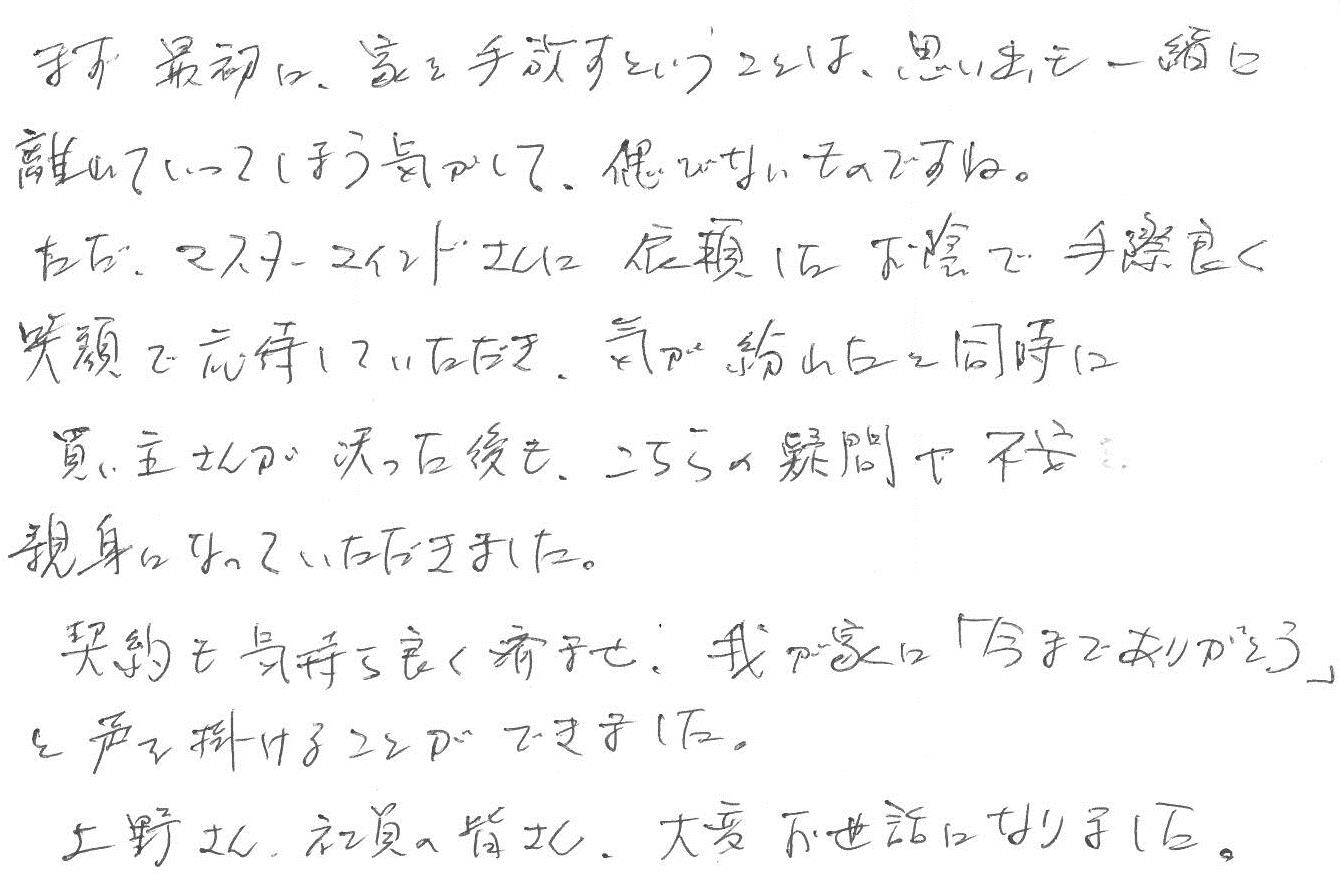 まず最初に、家を手放すということは、思い出も一緒に
離れていってしまう気がして、偲びないものですね。
ただ、マスターマインドさんに依頼したお陰で手際良く
笑顔で応待していただき、気が紛れたと同時に
買い主さんが決った後も、こちらの疑問や不安
親身になっていただきました。
契約も気持ち良く済ませ、我が家に「今までありがとう」
と声を掛けることができました。
上野さん、社員の皆さん、大変お世話になりました。